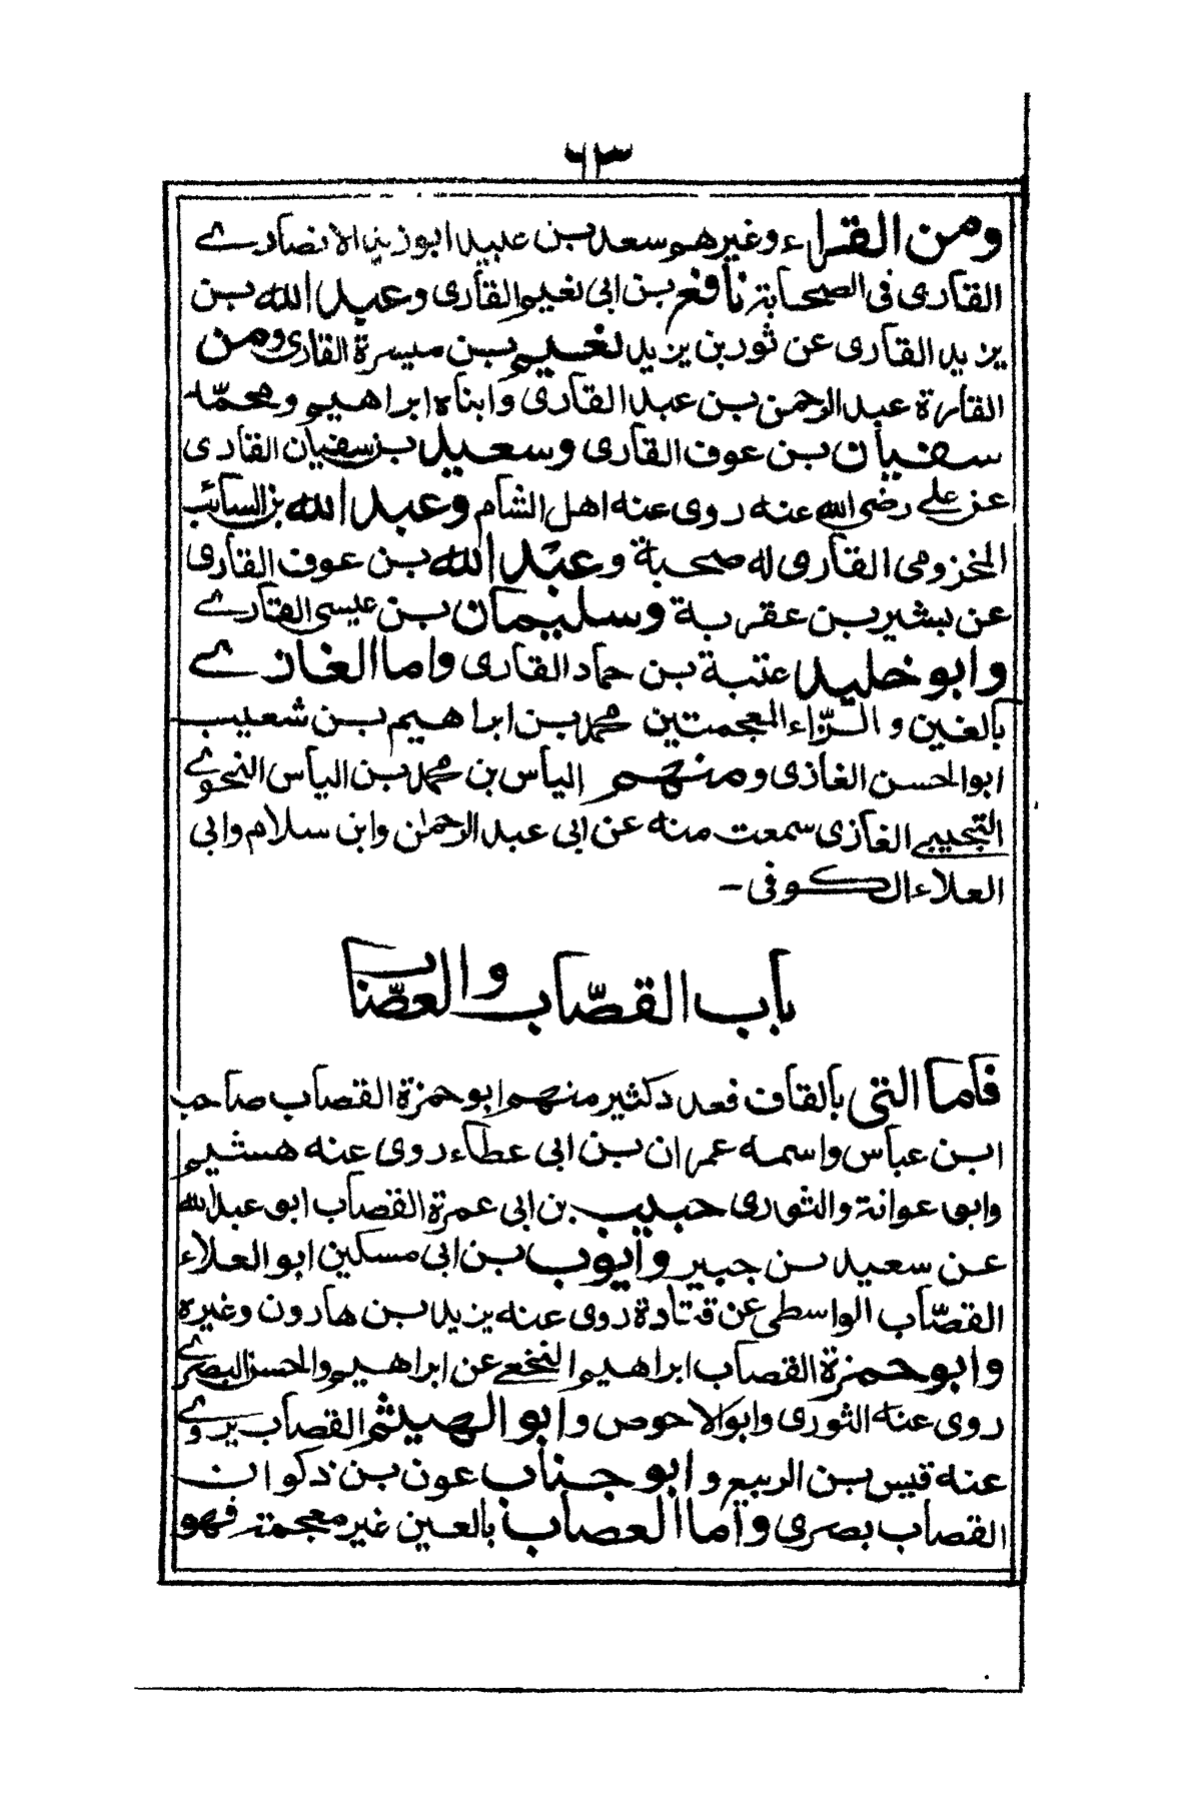 ٦٣
ومن القراء وغيرهم سعد بن عبيد ابو زيد الانصارى
القارى فى الصحابة نافع بن ابى نعيم القارى وعبد الله بن
يزيد القارى عن ثور بن يزيد نعيم بن ميسرة القارى ومن
القارة عبد الرحمن بن عبد القارى وابناه ابراهيم ومحمد
سفيان بن عوف القارى وسعيد بن سفيان القارى
عن على رضى الله عنه روى عنه اهل الشام وعبد الله بن السائب
المخزومى القارى له صحبة وعبد الله بن عوف القارى
عن بشير بن عقربة وسليمان بن عيسى القارى
وابو خليد عتبة بن حماد القارى واما الغازى
بالغين والزاء المعجمتين محمد بن ابراهيم بن شعيب
ابو الحسن الغازى ومنهم الياس بن محمد بن الياس النحوى
التجيبى الغازى سمعت منه عن ابى عبد الرحمن وابن سلام وابى
العلاء الكوفى -
باب القصّاب والعصّاب
فاما التى بالقاف فعدد كثير منهم ابو حمزة القصاب صاحب
ابن عباس واسمه عمران بن ابى عطاء روى عنه هشيم
وابو عوانة والثورى حبيب بن ابى عمرة القصاب ابو عبد الله
عن سعيد بن جبير وايوب بن ابى مسكين ابو العلاء
القصّاب الواسطى عن قتادة روى عنه يزيد بن هارون وغيره
وابو حمزة القصاب ابراهيم النخعى عن ابراهيم والحسن البصرى
روى عنه الثورى وابو الاحوص وابو الهيثم القصاب يروى
عنه قيس بن الربيع وابو جناب عون بن ذكوان
القصاب بصرى واما العصاب بالعين غير معجمة فهو